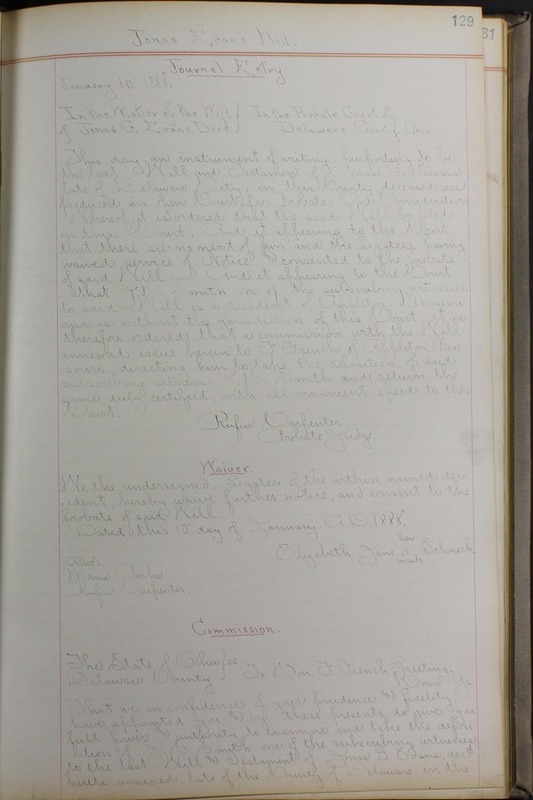 129
31
Jonas Evan's Will.
Journal Entry
January 10 1888.
In the Matter of the Will } In the Probate Court of
of Jonas G. Evans, Decd } Delaware County Ohio.
This day, an instrument of writing, purporting to be
the last Will and Testament of Jonas G. Evans
late of Delaware City, in this County deceased, was
produced in open Court for Probate. On Consideration
whereof it is ordered that the said Will be filed
in this Court. And it appearing to the Court
that there are no next of kin and the legatees having
waived service of Notice and consented to the probate
of said Will. And it appearing to the Court
that Smith one of the subscribing witnesses
to said Will is a resident of Appleton Missouri
and is without the jurisdiction of this Court, it is
therefore ordered that a commission with the Will
annexed issue herein to F. French of Appleton Mis
souri, directing him to take the deposition of said
subscribing witness Smith and return the
same, duly certified, with all convenient speed to this
Court.
Rufus Carpenter
Probate Judge.
Waiver
We the undersigned, Legatees of the within named dec
edent, hereby waive further notice, and consent to the
probate of said Will
Dated this 10 day of January A.D. 1888.
Elizabeth Jane her x mark Schneck
Mamie
Rufus Carpenter.
Commission.
The State of Ohio } ss
Delaware County } To Wm F. French Greeting;
Know Ye
That we in confidence of your prudence and fidelity
have appointed you and by these presents do give you
full power and authority to examine and take the depos
ition of Smyth one of the subscribing witnesses
to the last Will and Testament of Jonas G. Evans, decd
hereto annexed, late of the County of Delaware in the